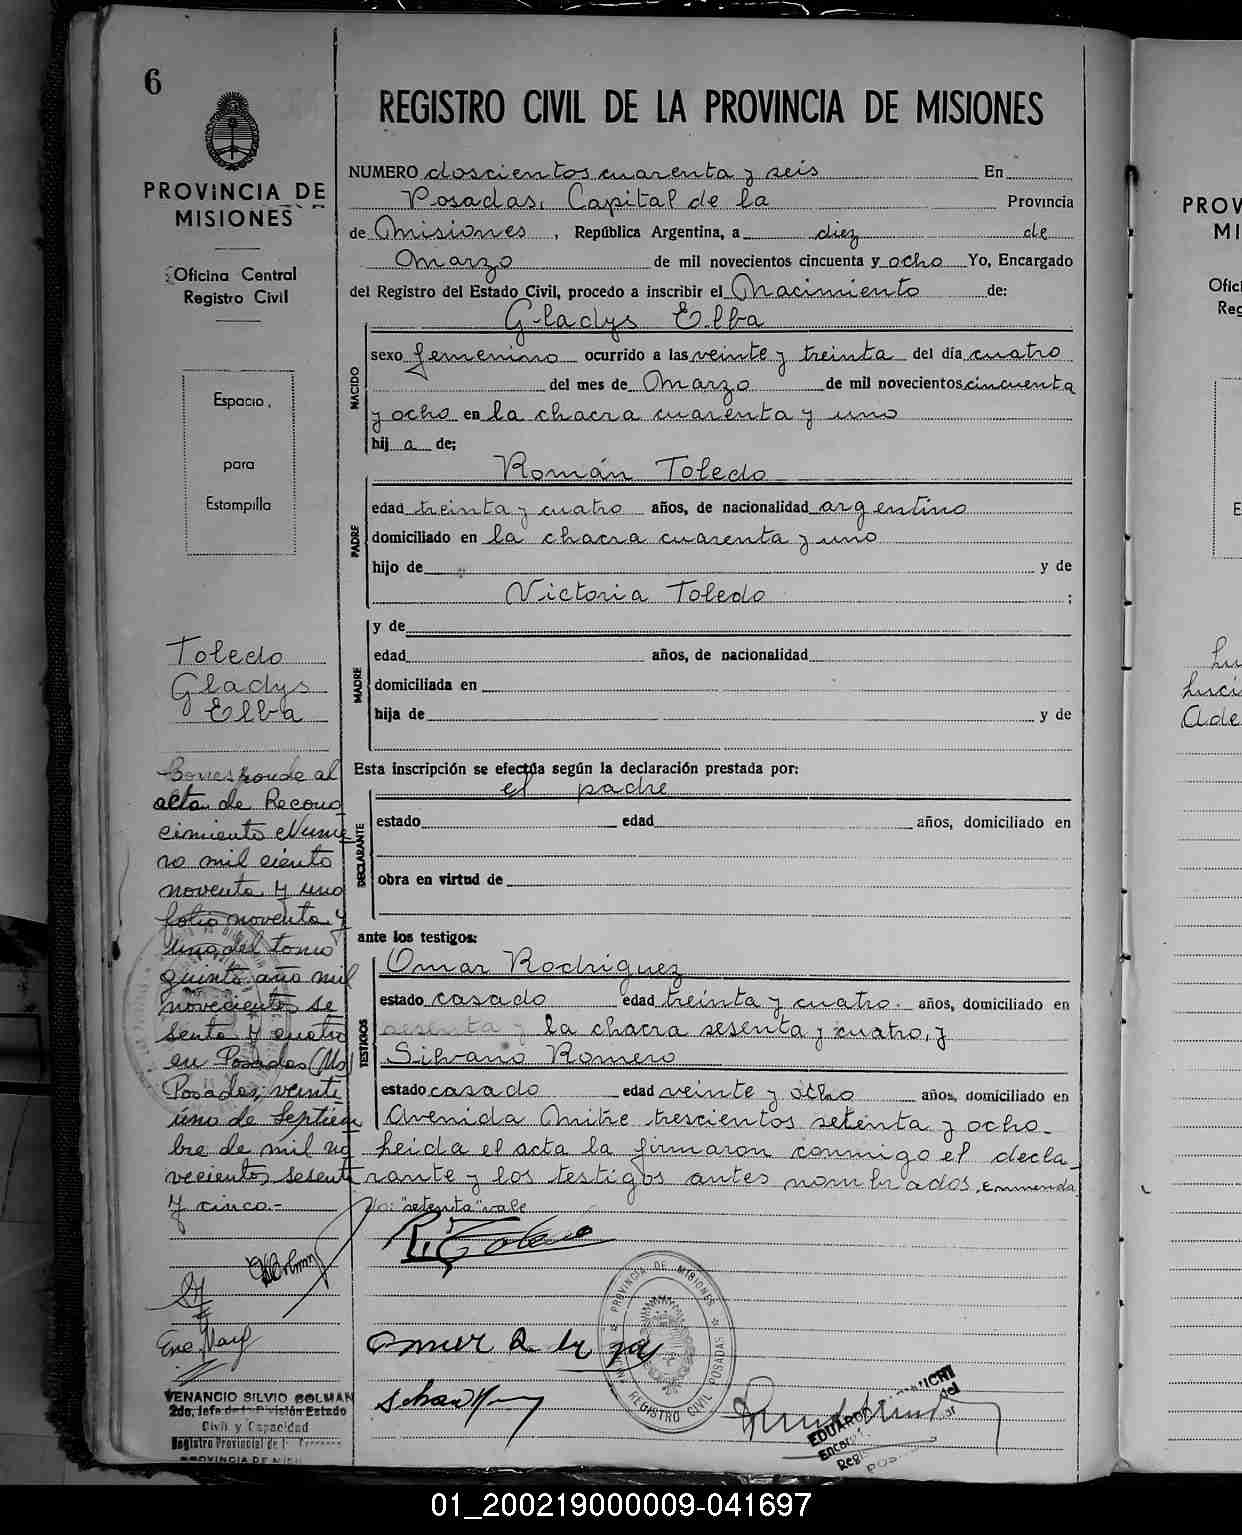 6
PROVINCIA DE
MISIONES
Oficina Central
Registro Civil
Espacio
para
Estampilla
REGISTRO CIVIL DE LA PROVINCIA DE MISIONES
NUMERO doscientos cuarenta y seis En
Posadas, Capital de la Provincia
de Misiones, República Argentina, a diez de
Marzo de mil novecientos cincuenta y ocho Yo, Encargado
del Registro del Estado Civil, procedo a inscribir el Nacimiento de:
Gladys Elba
NACIDO
sexo femenino ocurrido a las veinte y treinta del día cuatro
del mes de Marzo de mil novecientos cincuenta
y ocho en la chacra cuarenta y uno
hij a de;
Román Toledo
PADRE
edad treinta y cuatro años, de nacionalidad argentino
domiciliado en la chacra cuarenta y uno
hijo de y de
Victoria Toledo ;
MADRE
y de
edad años, de nacionalidad
domiciliada en
hija de y de
Esta inscripción se efectúa según la declaración prestada por:
el padre
DECLARANTE
estado edad años, domiciliado en
obra en virtud de
ante los testigos:
Omar Rodriguez
TESTIGOS
estado casado edad treinta y cuatro. años, domiciliado en
la chacra sesenta y cuatro, y
Silvano Romero
estado casado edad veinte y ocho años, domiciliado en
Avenida Mitre trescientos setenta y ocho_
heida el acta la firmaron conmigo el decla_
rante y los testigos antes nombrados, enmenda
do: "setenta" vale
R. Toledo
Toledo
Gladys
Elba
Corresponde al
acta de Recono
cimiento Nume
ro mil ciento
noventa y uno
folio noventa y
uno del tomo
quinto año mil
novecientos se
senta y cuatro
en Posadas (Ms)
Posadas, veinte
uno de Septiem
bre de mil no
vecientos sesenta
y cinco.-
VENANCIO SILVIO COLMAN
2do. Jefe de la División Estado
Civil y Capacidad
Registro Provincial de l
PROVINCIA DE MISI
PROVINCIA DE MISIONES
REGISTRO CIVIL POSADAS
EDUARDO
Encar
Regi
POS
PROV
MI
Ofici
Reg
E
Lu
Luci
Ade
01_200219000009-041697